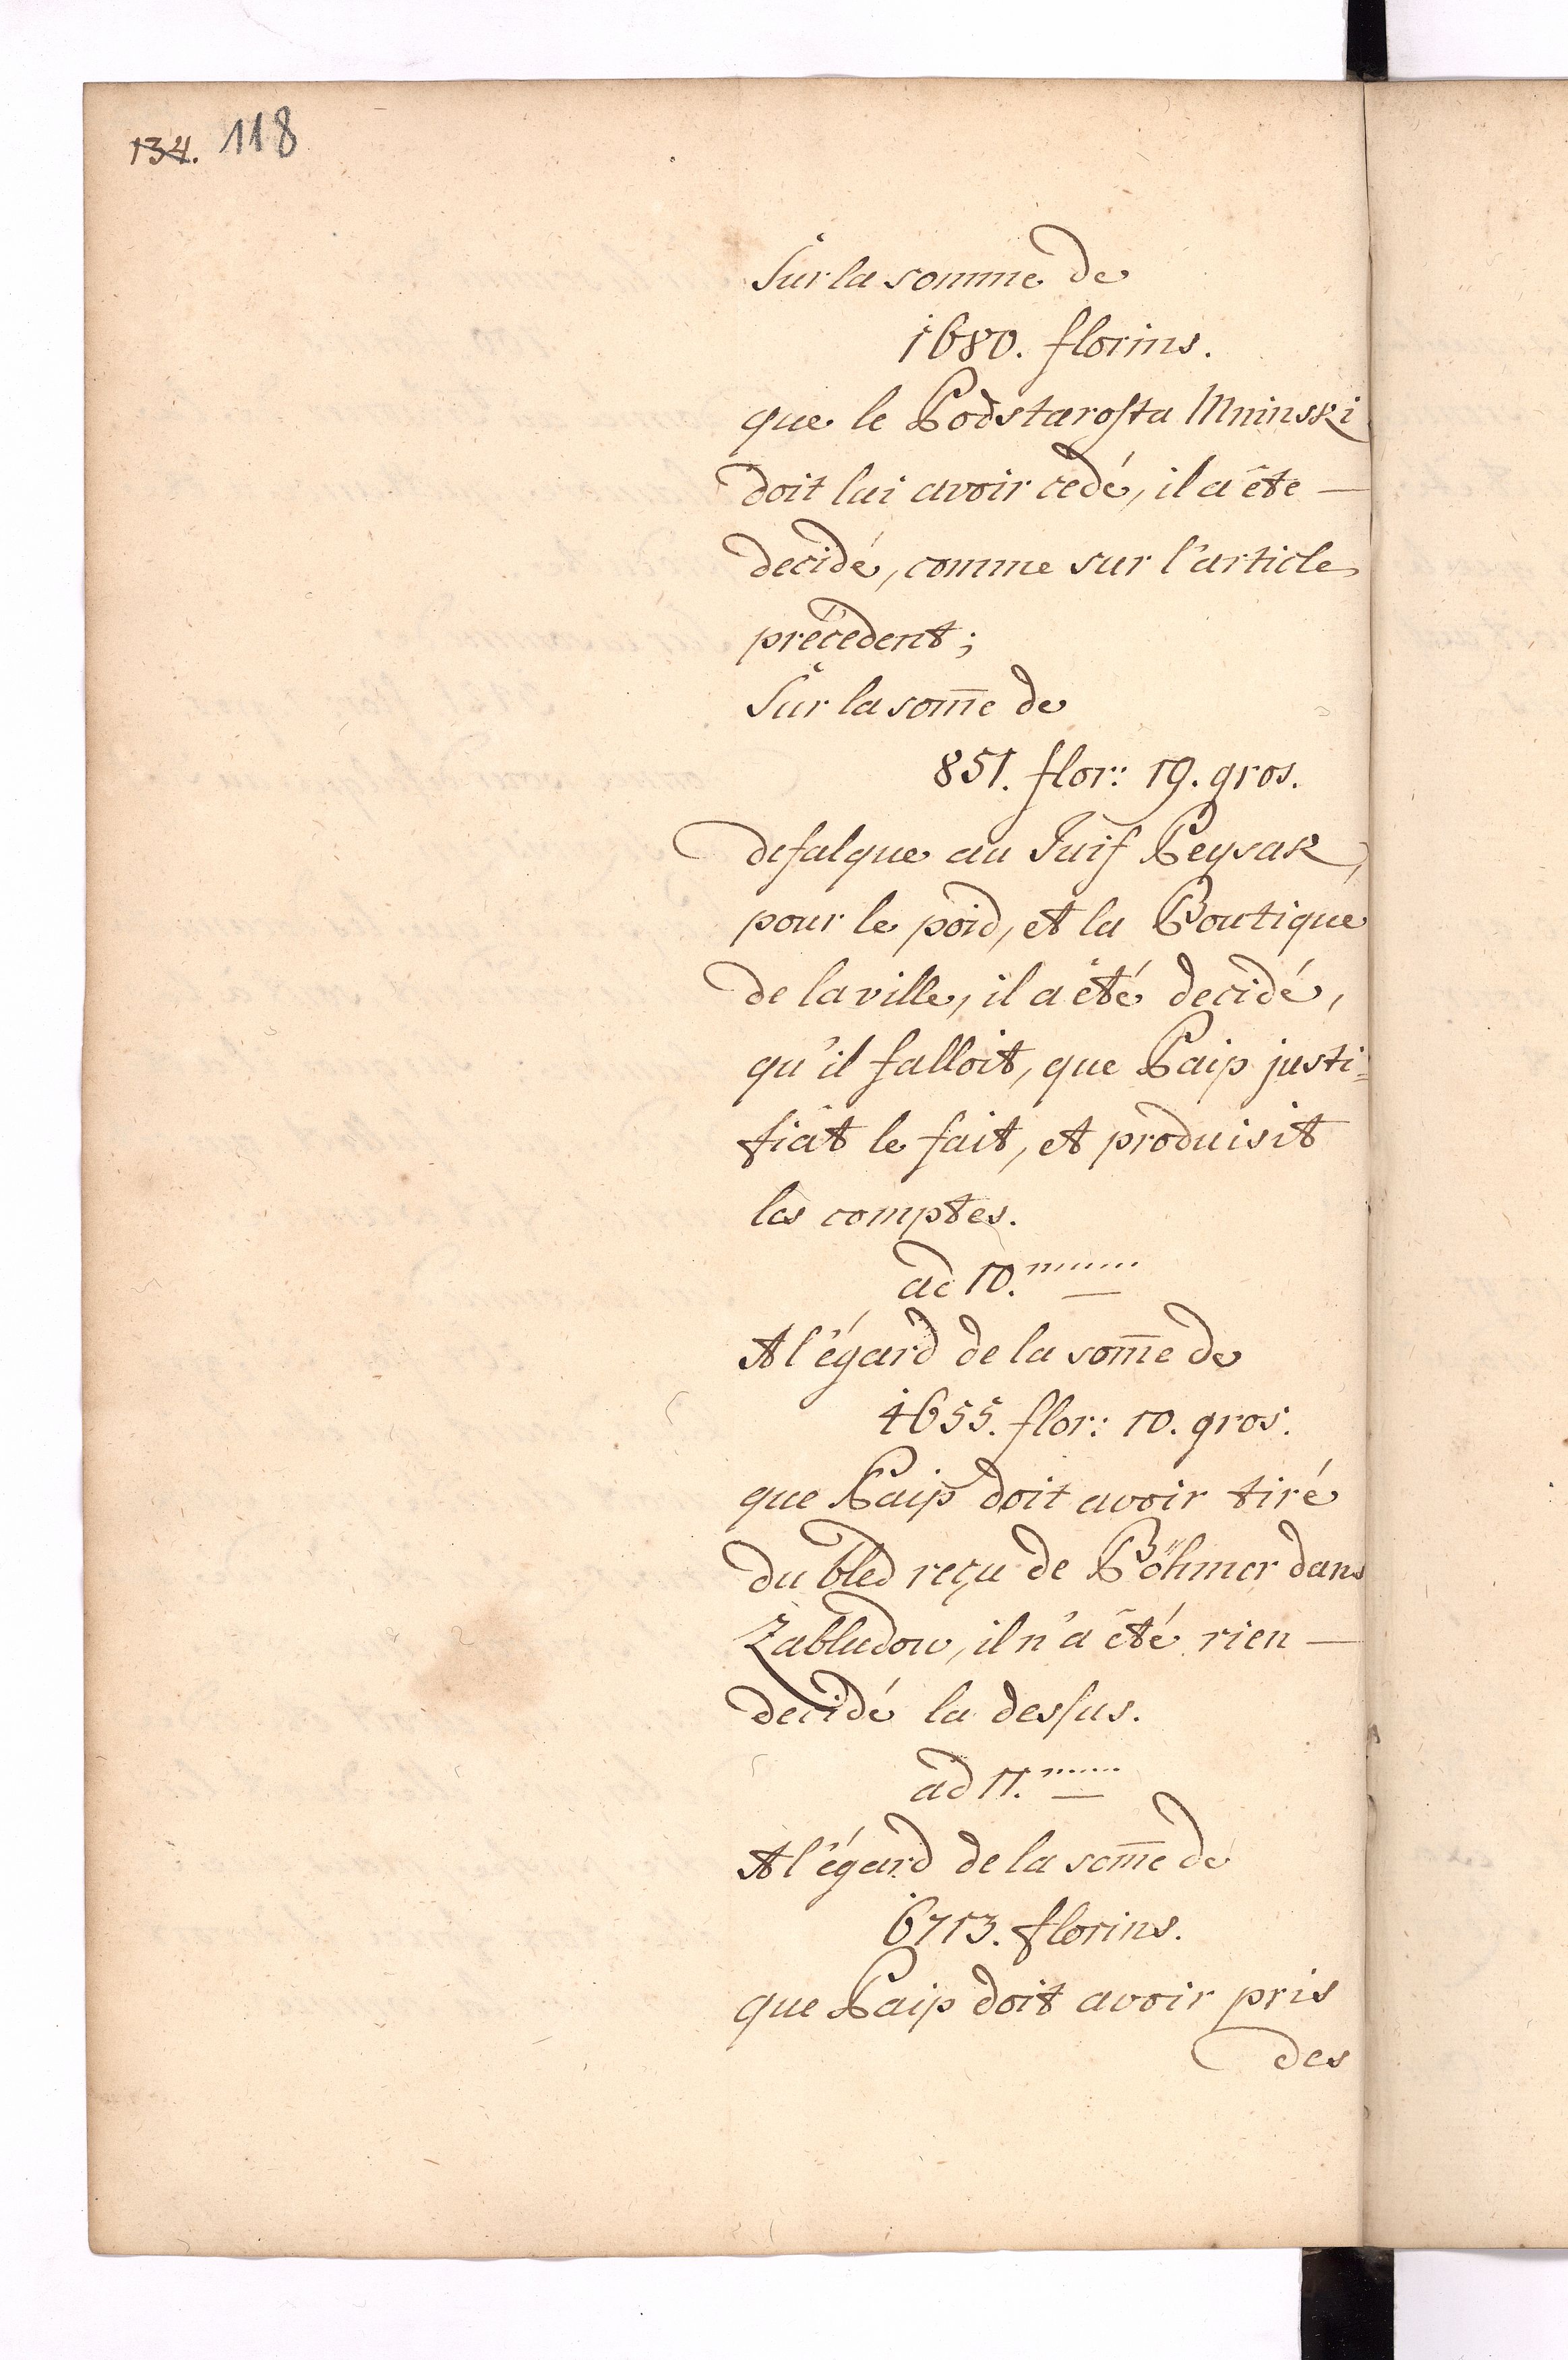 134. 118
Sur la somme de
1680. florins.
que le Podstarosta Mninski
doit lui avoir cedé, il a ête —
decidé, comme sur l'article
précedent;
Sur la som̄e de
851. flor: 19. gros.
defalque au Juif Peysak,
pour le poid, et la Boutique
de la ville, il a êté decidé,
qu'il falloit, que Paip justi=
fiât le fait, et produisit
les comptes.
ad 10.
A l'égard de la som̄e de
1655. flor: 10. gros.
que Paip doit avoir tiré
du bled reçu de Böhmer dans
Zabludow, il n'a êté rien —
decidé la dessus.
ad 11.
A l'égard de la som̄e de
6713. florins.
que Paip doit avoir pris
des